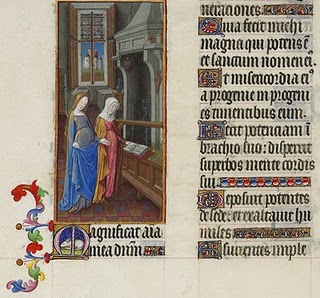 Magnificat aīa
mea dn̄m
neraciones.
Quia fecit michi
magna qui potens ē
et sanctum nomen eiꝰ.
Et misericordia eiꝰ
a progenie in progenies
timentibus eum.
Fecit potenciam ī
brachio suo: dispersit
superbos mente cordis
sui.
Deposuit potentes
de sede: et exaltauit hu
miles
Esurientes imple